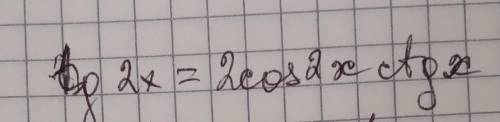 tg 2x = 2cos2x ctgx